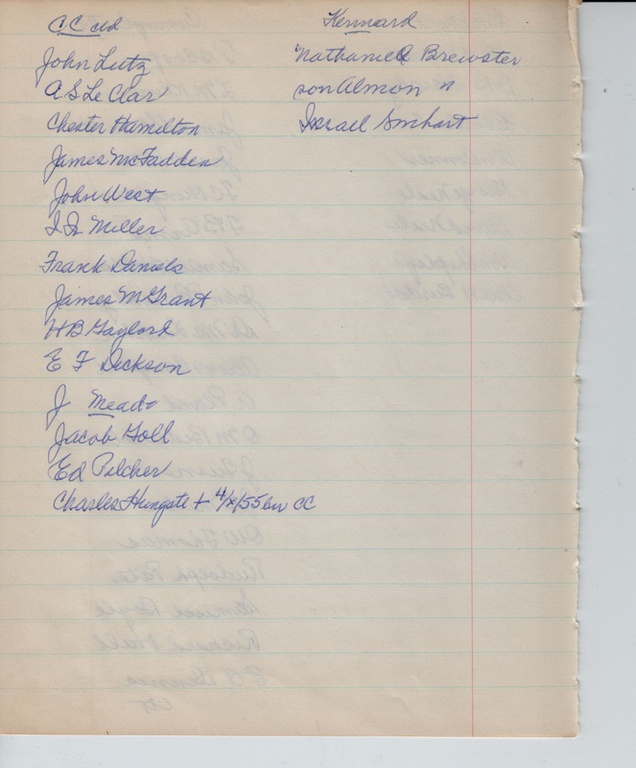 CC cld
John Lutz
A S Le Clar
Chester Hamilton
James McFadden
John West
Miller
Frank Daniels
James McGrant
H B Gaylord
E F Dickson
J Meado
Jacob Goll
Ed Pilcher
Charles Hungate + 4/x/55 bu CC
Kennard
Nathaniel Brewster
son Almon "
Israel Smhart